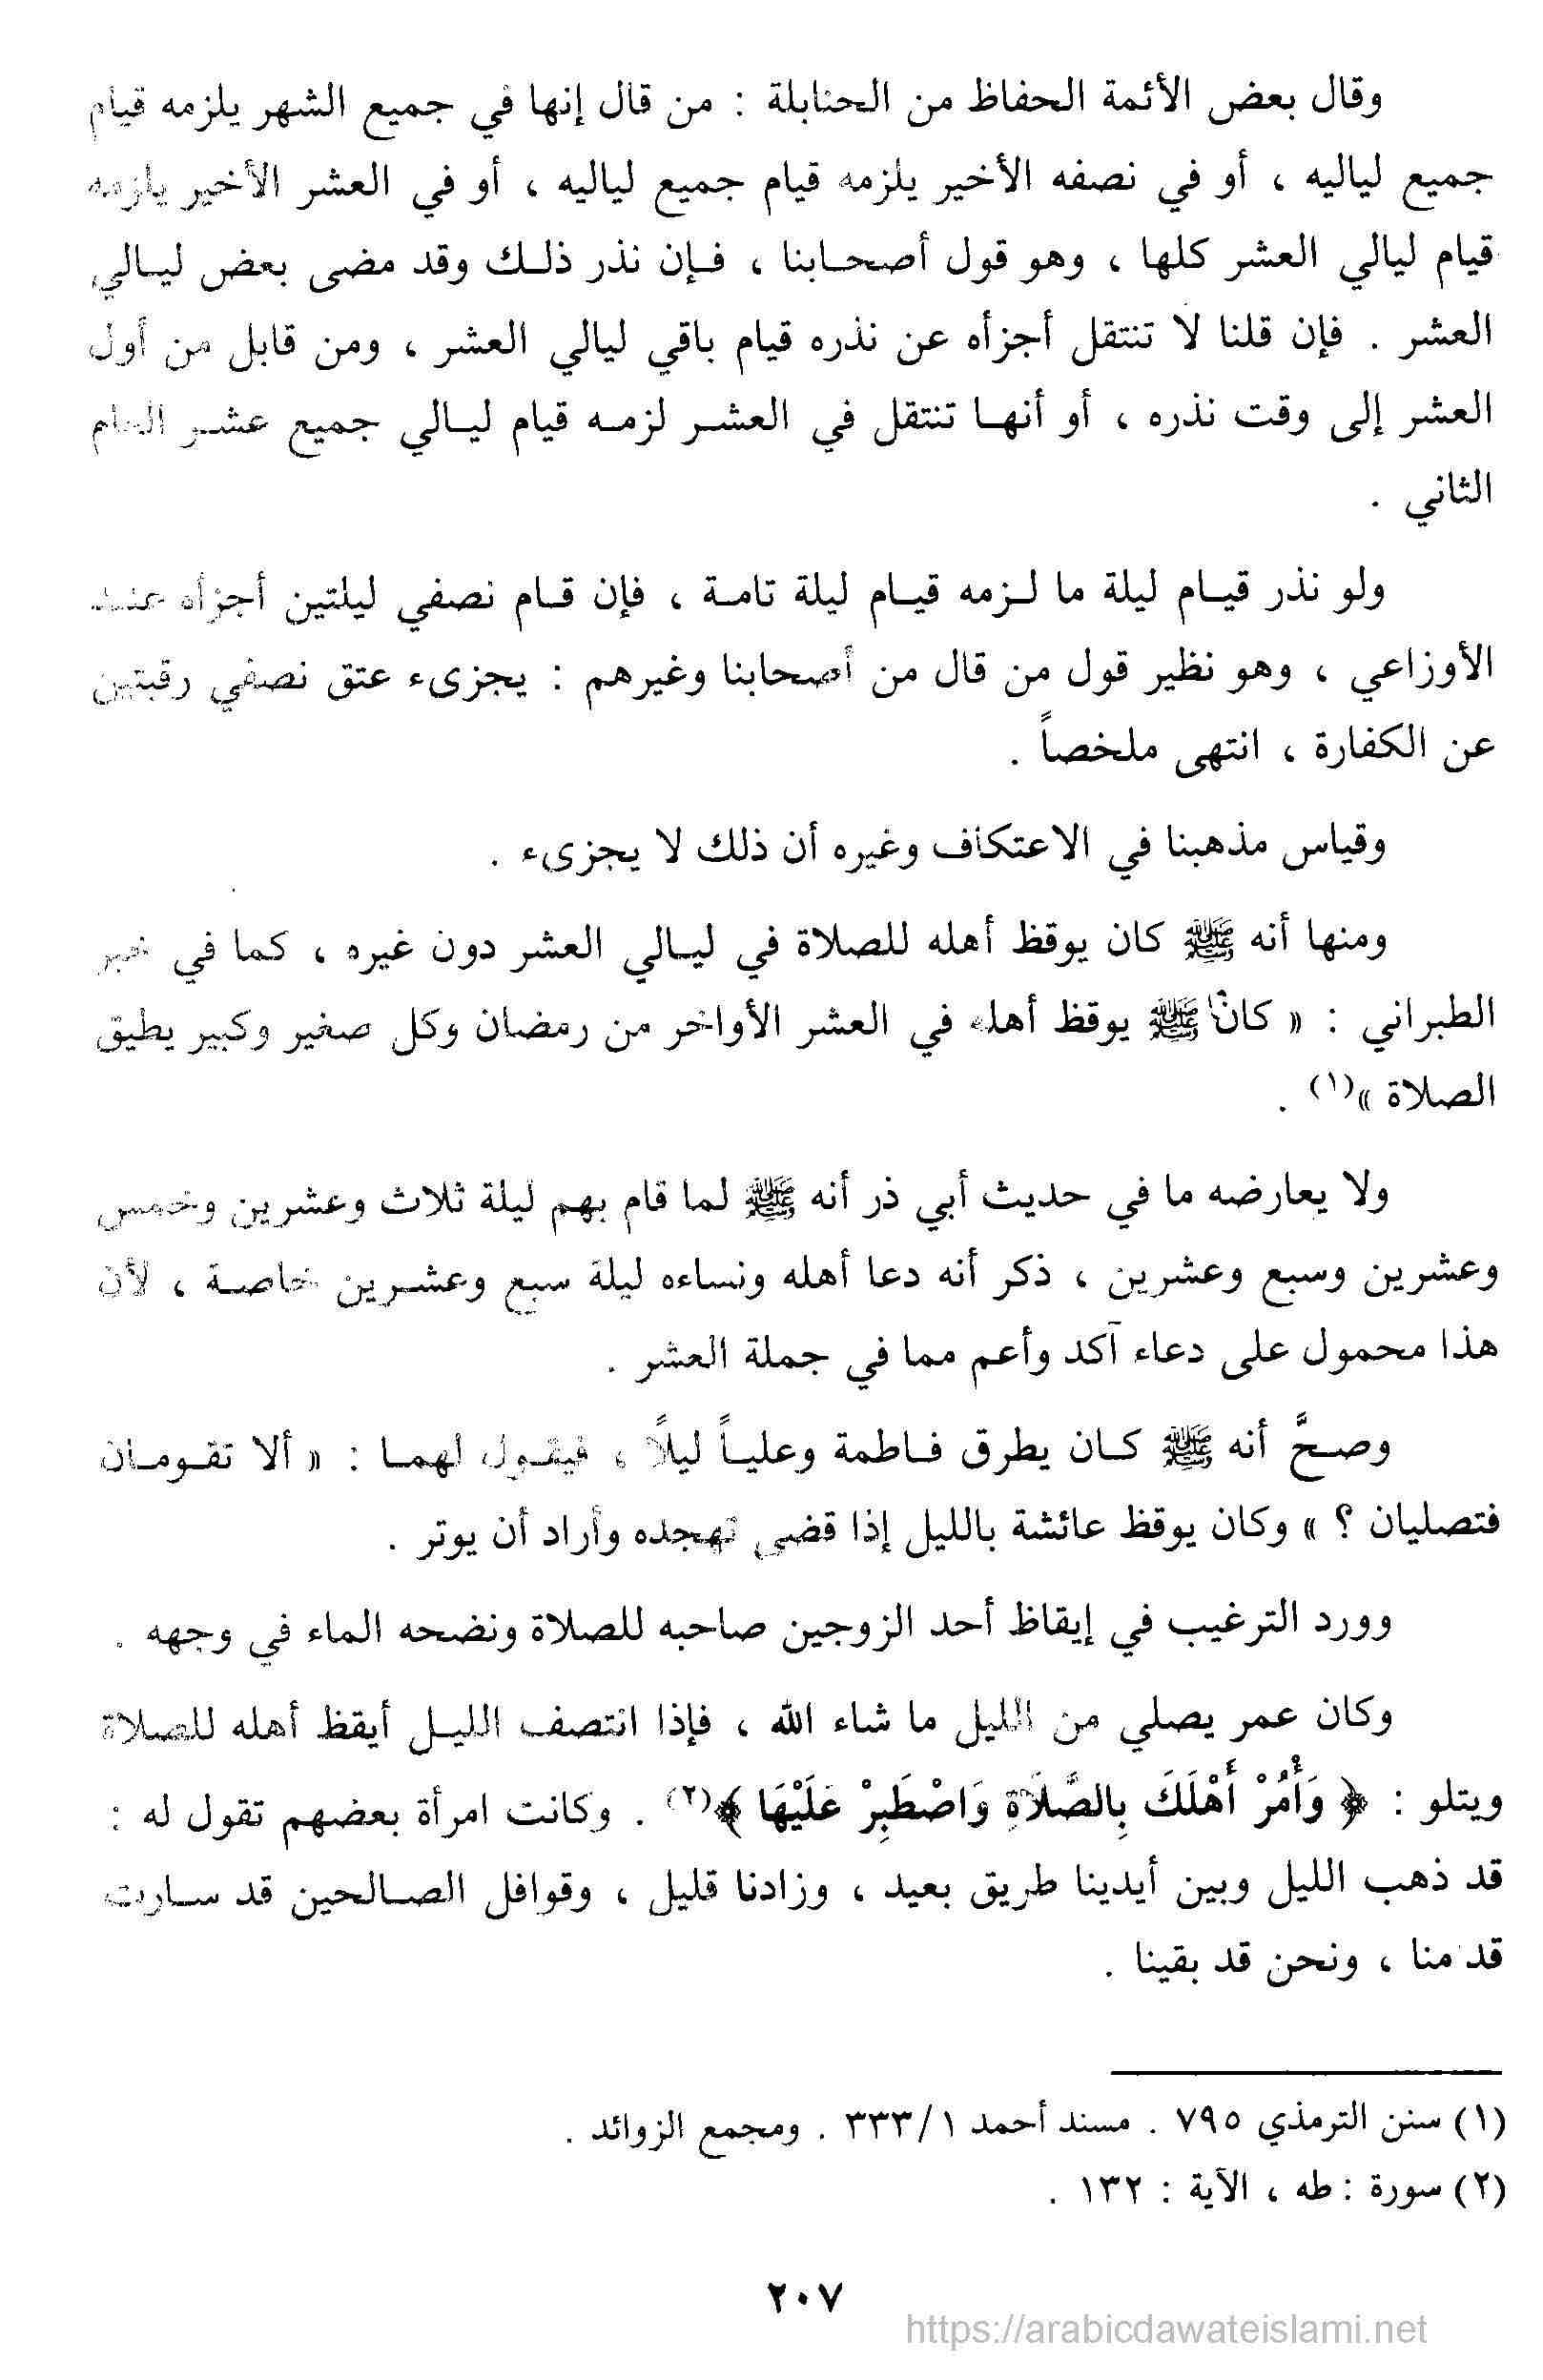 وقال بعض الأئمة الحفاظ من الحنابلة : من قال إنها في جميع الشهر يلزمه قيام
جميع لياليه ، أو في نصفه الأخير يلزمه قيام جميع لياليه ، أو في العشر الأخير يلزمه
قيام ليالي العشر كلها ، وهو قول أصحـابنا ، فـإن نذر ذلـك وقد مضى بعض ليـالي
العشر . فإن قلنا لا تنتقل أجزأه عن نذره قيام باقي ليالي العشر ، ومن قابل من أول
العشر إلى وقت نذره ، أو أنهـا تنتقل في العشـر لزمـه قيام ليـالي جميع عشـر العام
الثاني .
ولو نذر قيـام ليلة ما لـزمه قيـام ليلة تامـة ، فإن قـام نصفي ليلتين أجزأه عنـد
الأوزاعي ، وهو نظير قول من قال من أصحابنا وغيرهم : يجزىء عتق نصفي رقبتين
عن الكفارة ، انتهى ملخصاً .
وقياس مذهبنا في الاعتكاف وغيره أن ذلك لا يجزىء .
ومنها أنه ﷺ كان يوقظ أهله للصلاة في ليـالي العشر دون غيره ، كما في خبر
الطبراني : « كان ﷺ يوقظ أهله في العشر الأواخر من رمضان وكل صغير وكبير يطيق
الصلاة »(١) .
ولا يعارضه ما في حديث أبي ذر أنه ﷺ لما قام بهم ليلة ثلاث وعشرين وخمس
وعشرين وسبع وعشرين ، ذكر أنه دعا أهله ونساءه ليلة سبع وعشـرين خاصـة ، لأن
هذا محمول على دعاء آكد وأعم مما في جملة العشر .
وصـحَّ أنه ﷺ كـان يطرق فـاطمة وعليـاً ليلاً ، فيقـول لهمـا : « ألا تقـومـان
فتصليان ؟ » وكان يوقظ عائشة بالليل إذا قضى تهجده وأراد أن يوتر .
وورد الترغيب في إيقاظ أحد الزوجين صاحبه للصلاة ونضحه الماء في وجهه .
وكان عمر يصلي من الليل ما شاء الله ، فإذا انتصف الليـل أيقظ أهله للصلاة
ويتلو : ﴿ وَأْمُرْ أَهْلَكَ بِالصَّلَاةِ وَاصْطَبِرْ عَلَيْهَا ﴾(٢) . وكانت امرأة بعضهم تقول له :
قد ذهب الليل وبين أيدينا طريق بعيد ، وزادنا قليل ، وقوافل الصـالحين قد سـارت
قدمنا ، ونحن قد بقينا .
(١) سنن الترمذي ٧٩٥ . مسند أحمد ١/٣٣٣ . ومجمع الزوائد .
(٢) سورة : طه ، الآية : ١٣٢ .
٢٠٧
https://arabicdawateislami.net